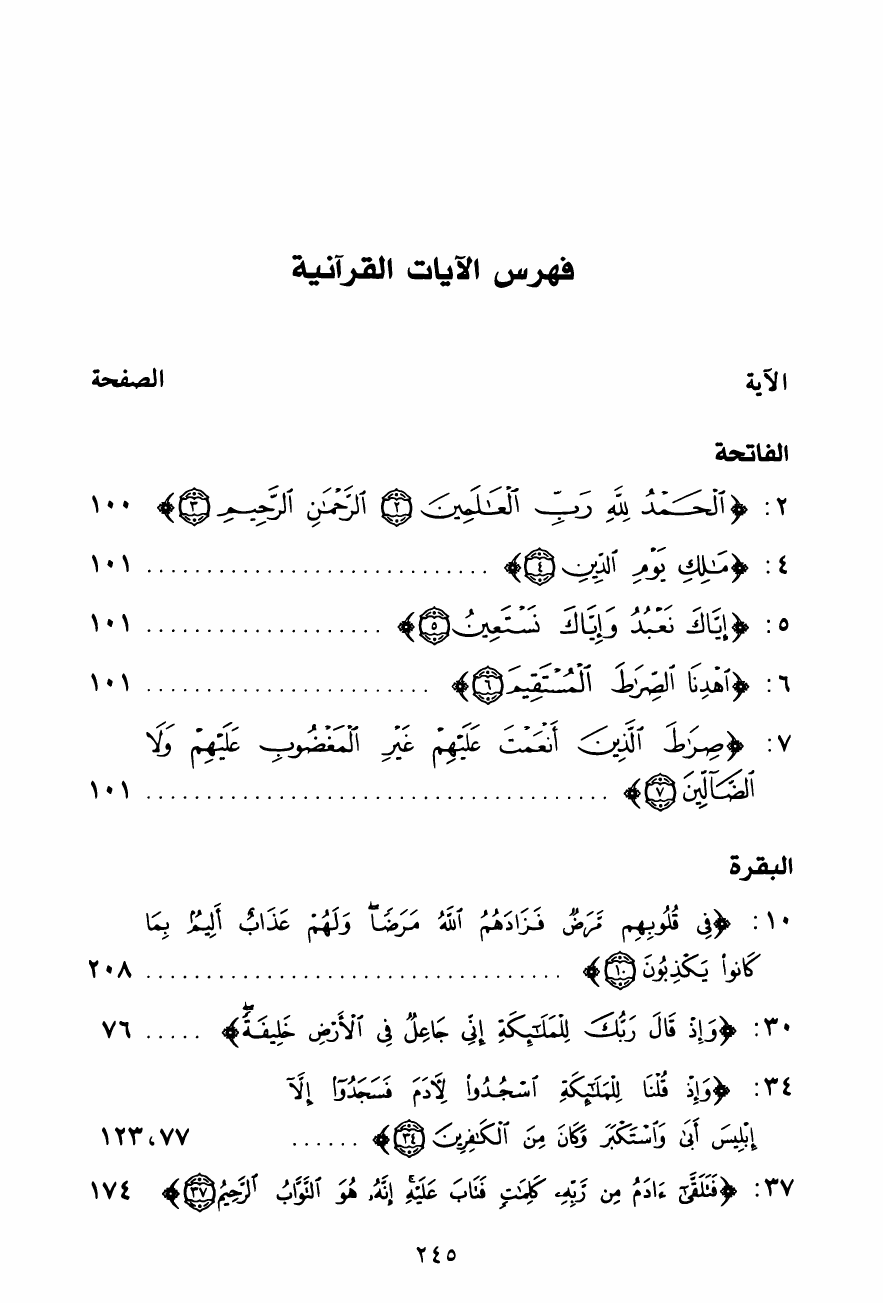 فهرس الآيات القرآنية
الآية الصفحة
الفاتحة
٢: ﴿ٱلْحَـمْدُ لِلَّهِ رَبِّ ٱلْعَـٰلَمِينَ ۝٢ ٱلرَّحْمَـٰنِ ٱلرَّحِيمِ ۝٣﴾ ١٠٠
٤: ﴿مَـٰلِكِ يَوْمِ ٱلدِّينِ ۝٤﴾ ............................. ١٠١
٥: ﴿إِيَّاكَ نَعْبُدُ وَإِيَّاكَ نَسْتَعِينُ ۝٥﴾ .................... ١٠١
٦: ﴿ٱهْدِنَا ٱلصِّرَٰطَ ٱلْمُسْتَقِيمَ ۝٦﴾ ........................ ١٠١
٧: ﴿صِرَٰطَ ٱلَّذِينَ أَنْعَمْتَ عَلَيْهِمْ غَيْرِ ٱلْمَغْضُوبِ عَلَيْهِمْ وَلَا
ٱلضَّآلِّينَ ۝٧﴾ ....................................... ١٠١
البقرة
١٠: ﴿فِى قُلُوبِهِم مَّرَضٌ فَزَادَهُمُ ٱللَّهُ مَرَضًۖا وَلَهُمْ عَذَابٌ أَلِيمٌۢ بِمَا
كَانُوا۟ يَكْذِبُونَ ۝١٠﴾ ................................... ٢٠٨
٣٠: ﴿وَإِذْ قَالَ رَبُّكَ لِلْمَلَـٰٓئِكَةِ إِنِّى جَاعِلٌ فِى ٱلْأَرْضِ خَلِيفَةًۖ﴾ ..... ٧٦
٣٤: ﴿وَإِذْ قُلْنَا لِلْمَلَـٰٓئِكَةِ ٱسْجُدُوا۟ لِـَٔادَمَ فَسَجَدُوٓا۟ إِلَّآ
إِبْلِيسَ أَبَىٰ وَٱسْتَكْبَرَ وَكَانَ مِنَ ٱلْكَـٰفِرِينَ ۝٣٤﴾ ...... ٧٧، ١٢٣
٣٧: ﴿فَتَلَقَّىٰٓ ءَادَمُ مِن رَّبِّهِۦ كَلِمَـٰتٍ فَتَابَ عَلَيْهِۚ إِنَّهُۥ هُوَ ٱلتَّوَّابُ ٱلرَّحِيمُ ۝٣٧﴾ ١٧٤
٢٤٥